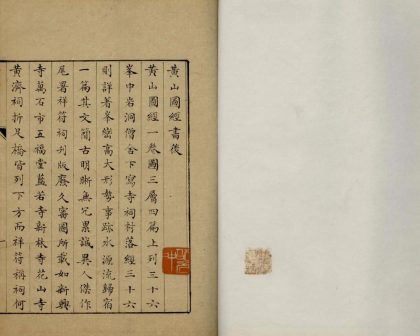 黃山圖經書後
黃山圖經一卷圖三層四篇上列三十六
峯中岩洞僧舍下寫寺祠村落經三十六
則詳著峯巒高大形勢事跡水源流歸宿
一篇其文簡古明晰無冗累誠異人傑作
尾署祥符祠刊版廢久審圖所載如新興
寺萬石市五福堂藍若寺新林寺花山寺
黃濟祠折足橋皆列下方而祥符稱祠何